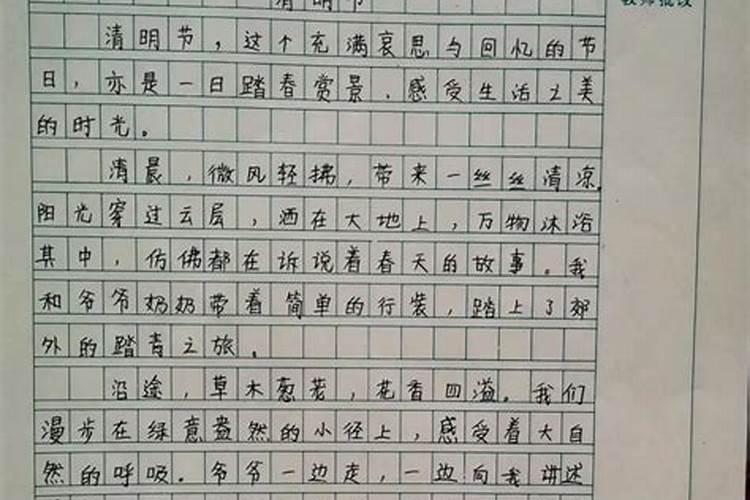 清明节
教师批改
清明节，这个充满哀思与回忆的节
日，亦是一日踏春赏景、感受生活之美
的时光。
清晨，微风轻拂，带来一丝丝清凉。
阳光穿过云层，洒在大地上，万物沐浴
其中，仿佛都在诉说着春天的故事。我
和爷爷奶奶带着简单的行装，踏上了郊
外的踏青之旅。
沿途，草木葱茏，花香四溢。我们
漫步在绿意盎然的小径上，感受着大自
然的呼吸。爷爷一边走，一边向我讲述